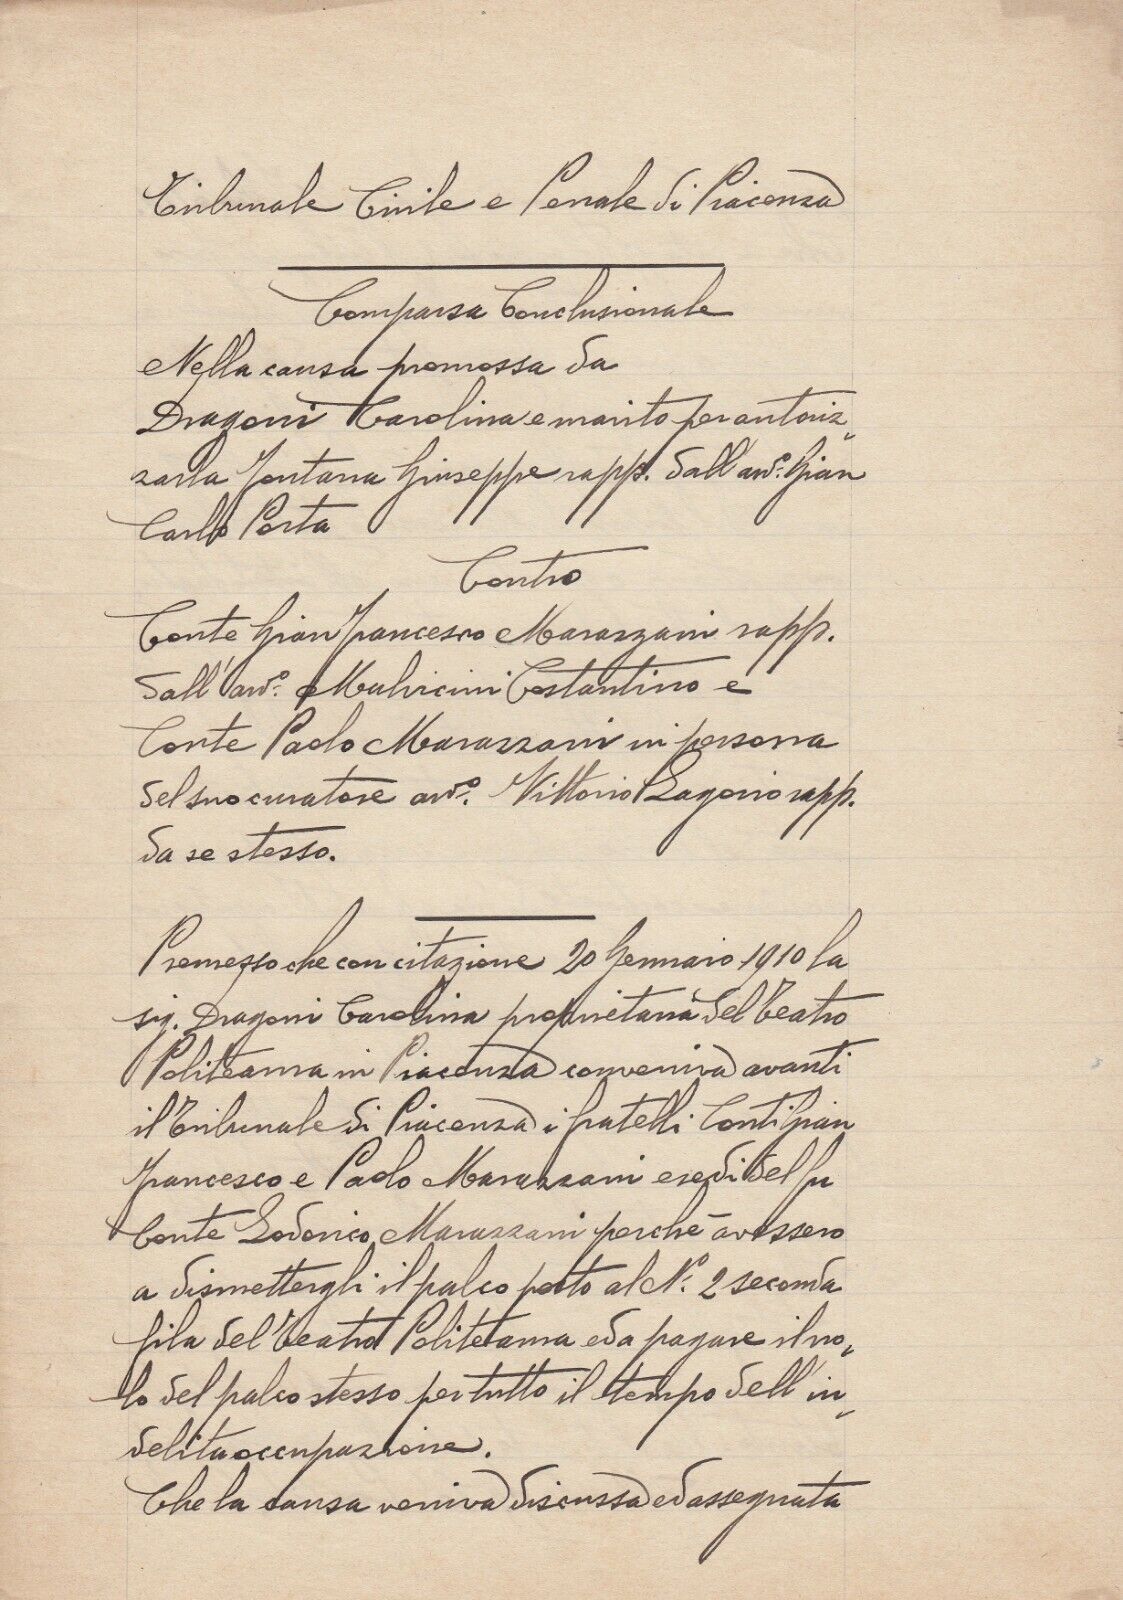 Tribunale Civile e Penale di Piacenza
Comparsa Conclusionale
Nella causa promossa da
Dragoni Carolina e marito per autoriz=
zarla Fontana Giuseppe rapp. dall'avv.º Gian
Carlo Porta
Contro
Conte Gian Francesco Marazzani rapp.
dall'avv.º Malvicini Costantino e
Conte Paolo Marazzani in persona
del suo curatore avv.º Vittorio rapp.
da se stesso.
Premesso che con citazione 20 Gennaio 1910 la
sig. Dragoni Carolina proprietaria del Teatro
Politeama in Piacenza conveniva avanti
il Tribunale di Piacenza i fratelli Conti Gian
Francesco e Paolo Marazzani eredi del fu
Conte Lodovico Marazzani perchè avessero
a dismettergli il palco posto al Nº. 2 seconda
fila del Teatro Politeama ed a pagare il no=
lo del palco stesso per tutto il tempo dell'in=
debita occupazione.
Che la causa veniva discussa ed assegnata